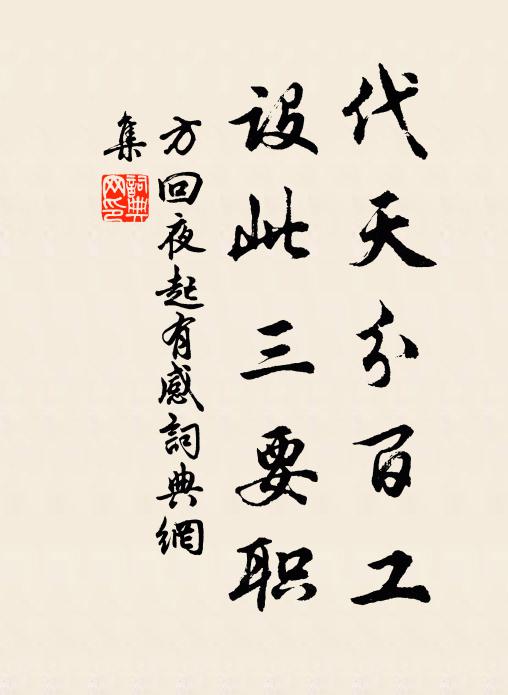 代天分百工
设此三要职
方回夜起有感詞典網
集
詞典網印